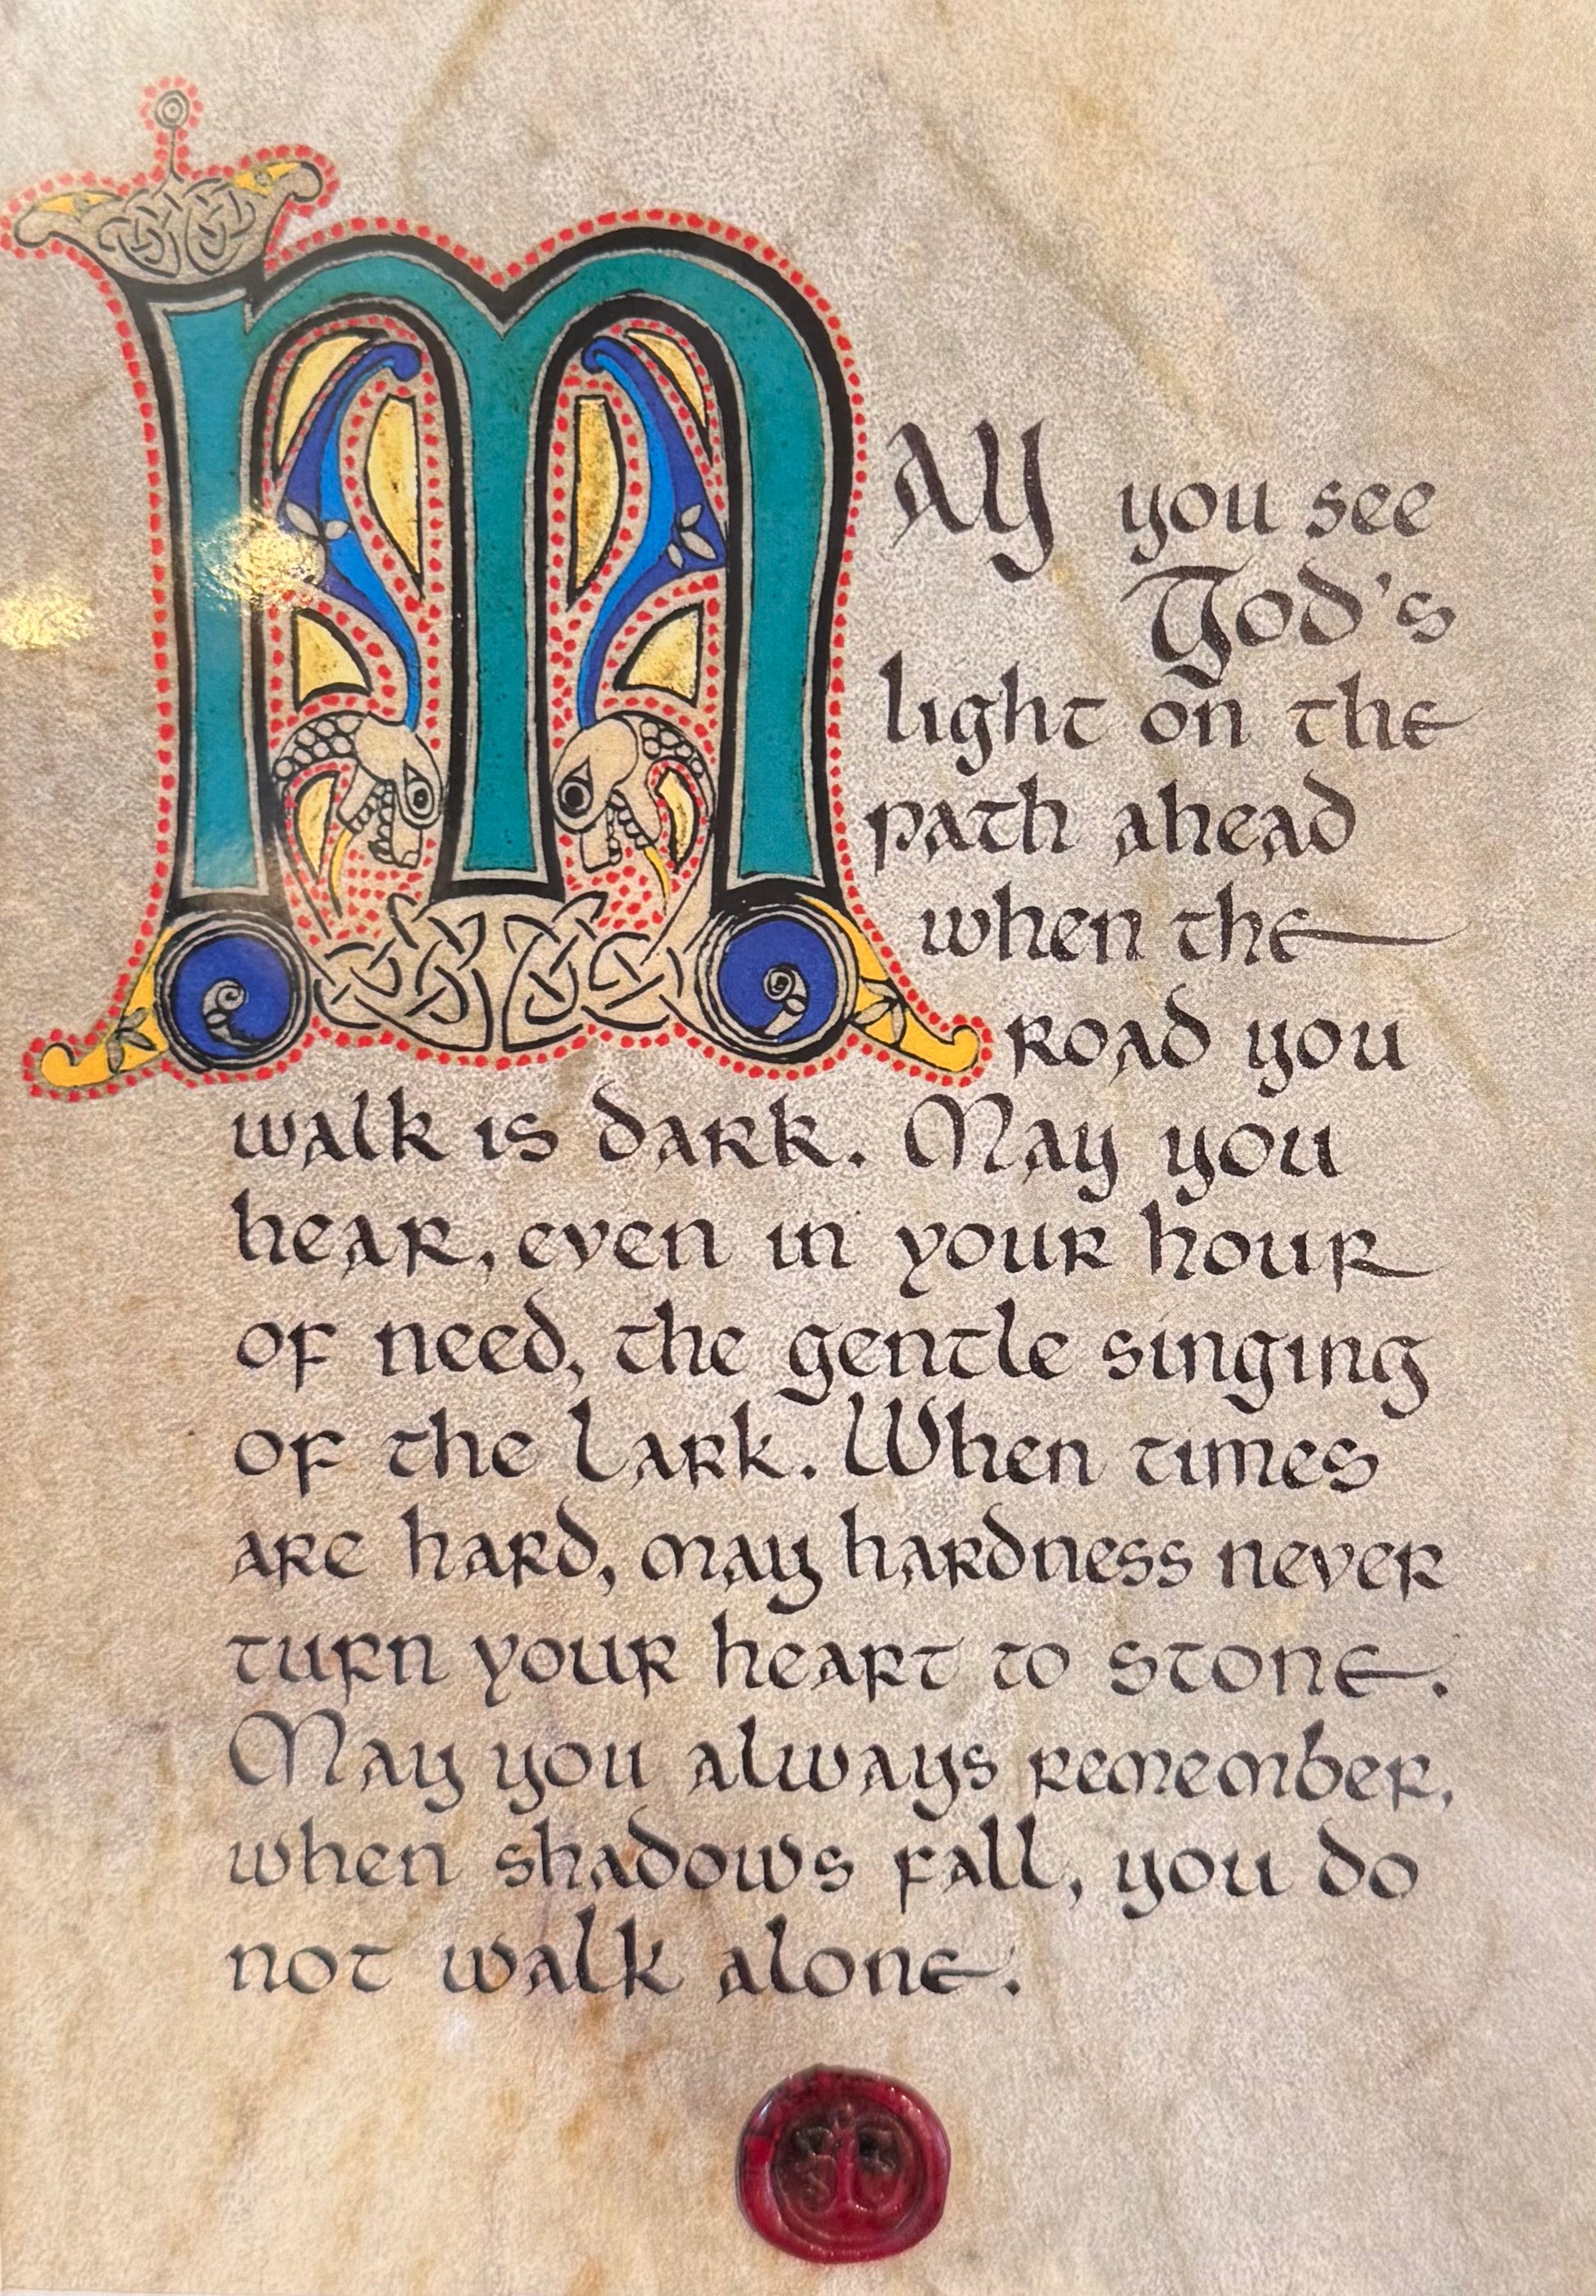 May you see
God's
light on the
path ahead
when the
road you
walk is dark. May you
hear, even in your hour
of need, the gentle singing
of the Lark. When times
are hard, may hardness never
turn your heart to stone.
May you always remember,
when shadows fall, you do
not walk alone.